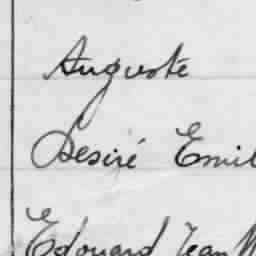 Auguste
Desiré Emil
Edouard Jean